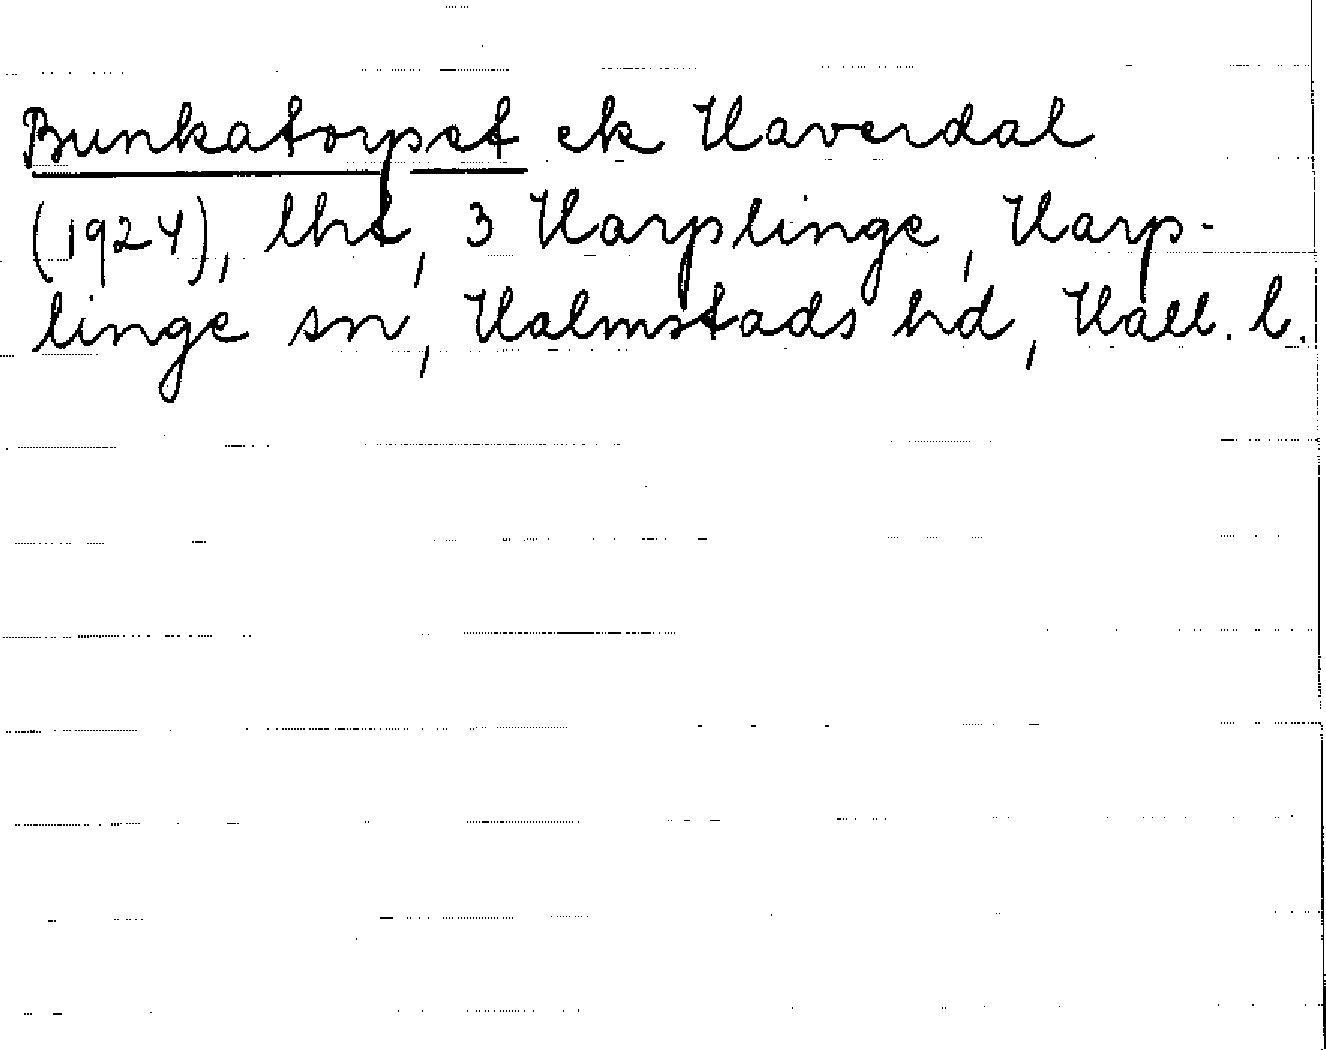 Bunkatorpet ek Haverdal
(1924), lht, 3 Harplinge, Harp-
linge sn, Halmstads hd, Hall. l.